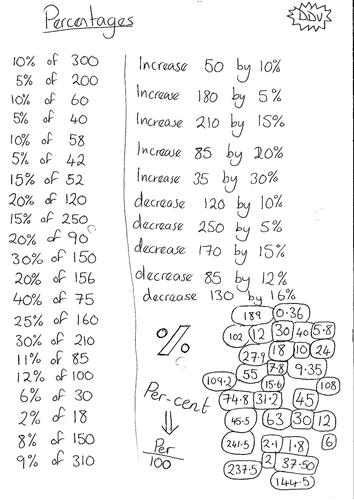 Percentages
DDV
10% of 300
5% of 200
10% of 60
5% of 40
10% of 58
5% of 42
15% of 52
20% of 120
15% of 250
20% of 90
30% of 150
20% of 156
40% of 75
25% of 160
30% of 210
11% of 85
12% of 100
6% of 30
2% of 18
8% of 150
9% of 310
Increase 50 by 10%
Increase 180 by 5%
Increase 210 by 15%
Increase 85 by 20%
Increase 35 by 30%
decrease 120 by 10%
decrease 250 by 5%
decrease 170 by 15%
decrease 85 by 12%
decrease 130 by 16%
%
Per-cent
Per
100
189 0.36
102 12 30 40 5.8
27.9 18 10 24
109.2 55 7.8 9.35
15.6 108
74.8 31.2 45
45.5 63 30 12
241.5 2.1 1.8 6
237.5 2 37.50
144.5